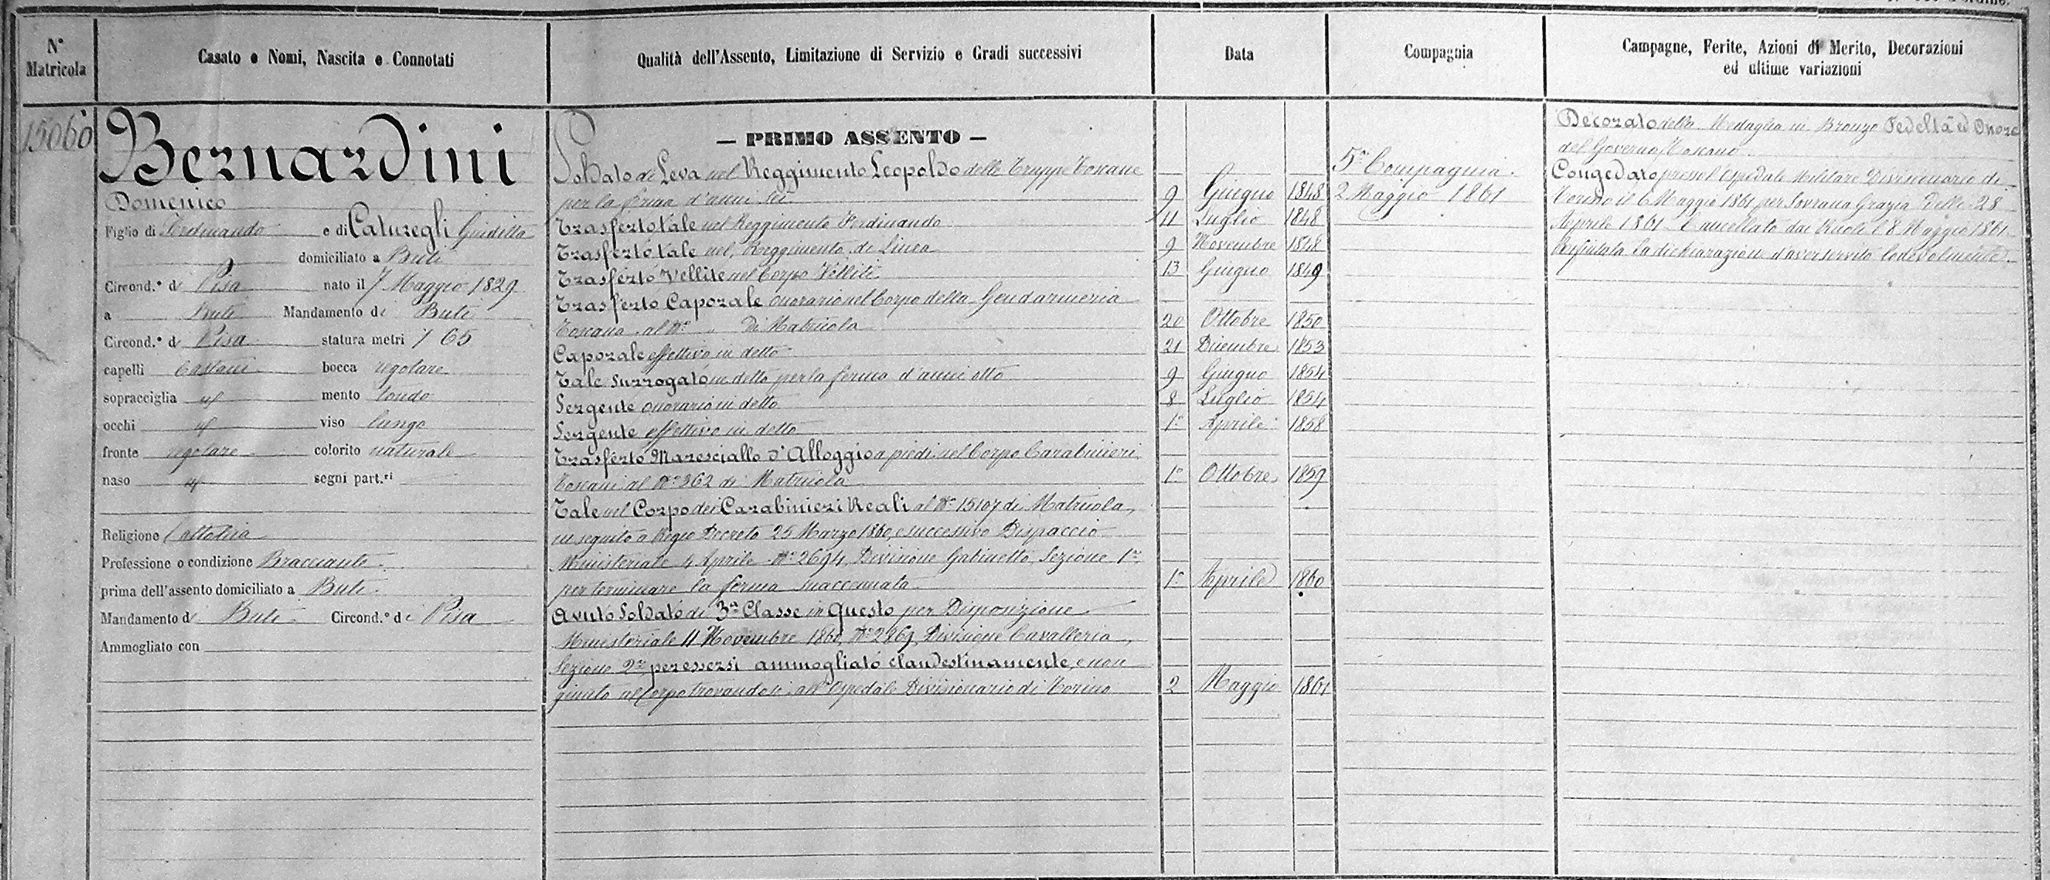 N° Matricola
Casato e Nomi, Nascita e Connotati
Qualità dell'Assento, Limitazione di Servizio e Gradi successivi
Data
Compagnia
Campagne, Ferite, Azioni di Merito, Decorazioni
ed ultime variazioni
15060
Bernardini
Domenico
Figlio di Ferdinando e di Caturegli
domiciliato a Buti
Circond.° di Pisa nato il 7 Maggio 1829
a Buti Mandamento di Buti
Circond.° di Pisa statura metri 1 65
capelli Castani bocca regolare
sopracciglia id mento tondo
occhi id viso lungo
fronte regolare colorito naturale
naso id segni part.ri
Religione Cattolica
Professione o condizione Bracciante
prima dell'assento domiciliato a Buti
Mandamento di Buti Circond.° di Pisa
Ammogliato con
— PRIMO ASSENTO —
Soldato di Leva nel Reggimento Leopoldo delle Truppe Toscane
per la ferma d'anni sei 9 Giugno 1848
Trasferto tale nel Reggimento Ferdinando 11 Luglio 1848
Trasferto tale nel Reggimento di Linea 9 Novembre 1848
Trasferto Vellite nel Corpo Velliti 13 Giugno 1849
Trasferto Caporale onorario nel Corpo della Gendarmeria
Toscana al N° di Matricola 20 Ottobre 1850
Caporale effettivo in detto 21 Dicembre 1853
Tale surrogato in detto per la ferma d'anni otto 9 Giugno 1854
Sergente onorario in detto 8 Luglio 1854
Sergente effettivo in detto 1° Aprile 1858
Trasferto Maresciallo d'Alloggio a piedi nel Corpo Carabinieri
Toscani al N° 362 di Matricola 1° Ottobre 1859
Tale nel Corpo dei Carabinieri Reali al N° 15107 di Matricola,
in seguito a Regio Decreto 25 Marzo 1860, e successivo Dispaccio
Ministeriale 4 Aprile N° 2694, Divisione Gabinetto, Sezione 1ª
per terminare la ferma suaccennata 1° Aprile 1860
Avuto Soldato di 3ª Classe in Questo per Disposizione
Ministeriale 11 Novembre 1860, N° 2869, Divisione Cavalleria,
Sezione 2ª per essersi ammogliato clandestinamente, e non
giunto al Corpo trovandosi all'Ospedale Divisionario di Torino 2 Maggio 1861
5ª Compagnia.
2 Maggio 1861
Decorato della Medaglia in Bronzo Fedeltà ed Onore
del Governo Toscano
Congedato presso l'Ospedale Militare Divisionario di
Torino il 6 Maggio 1861 per Sovrana Grazia delle 28
Aprile 1861 Cancellato dai Ruoli l'8 Maggio 1861
la dichiarazione d'aver servito lodevolmente.